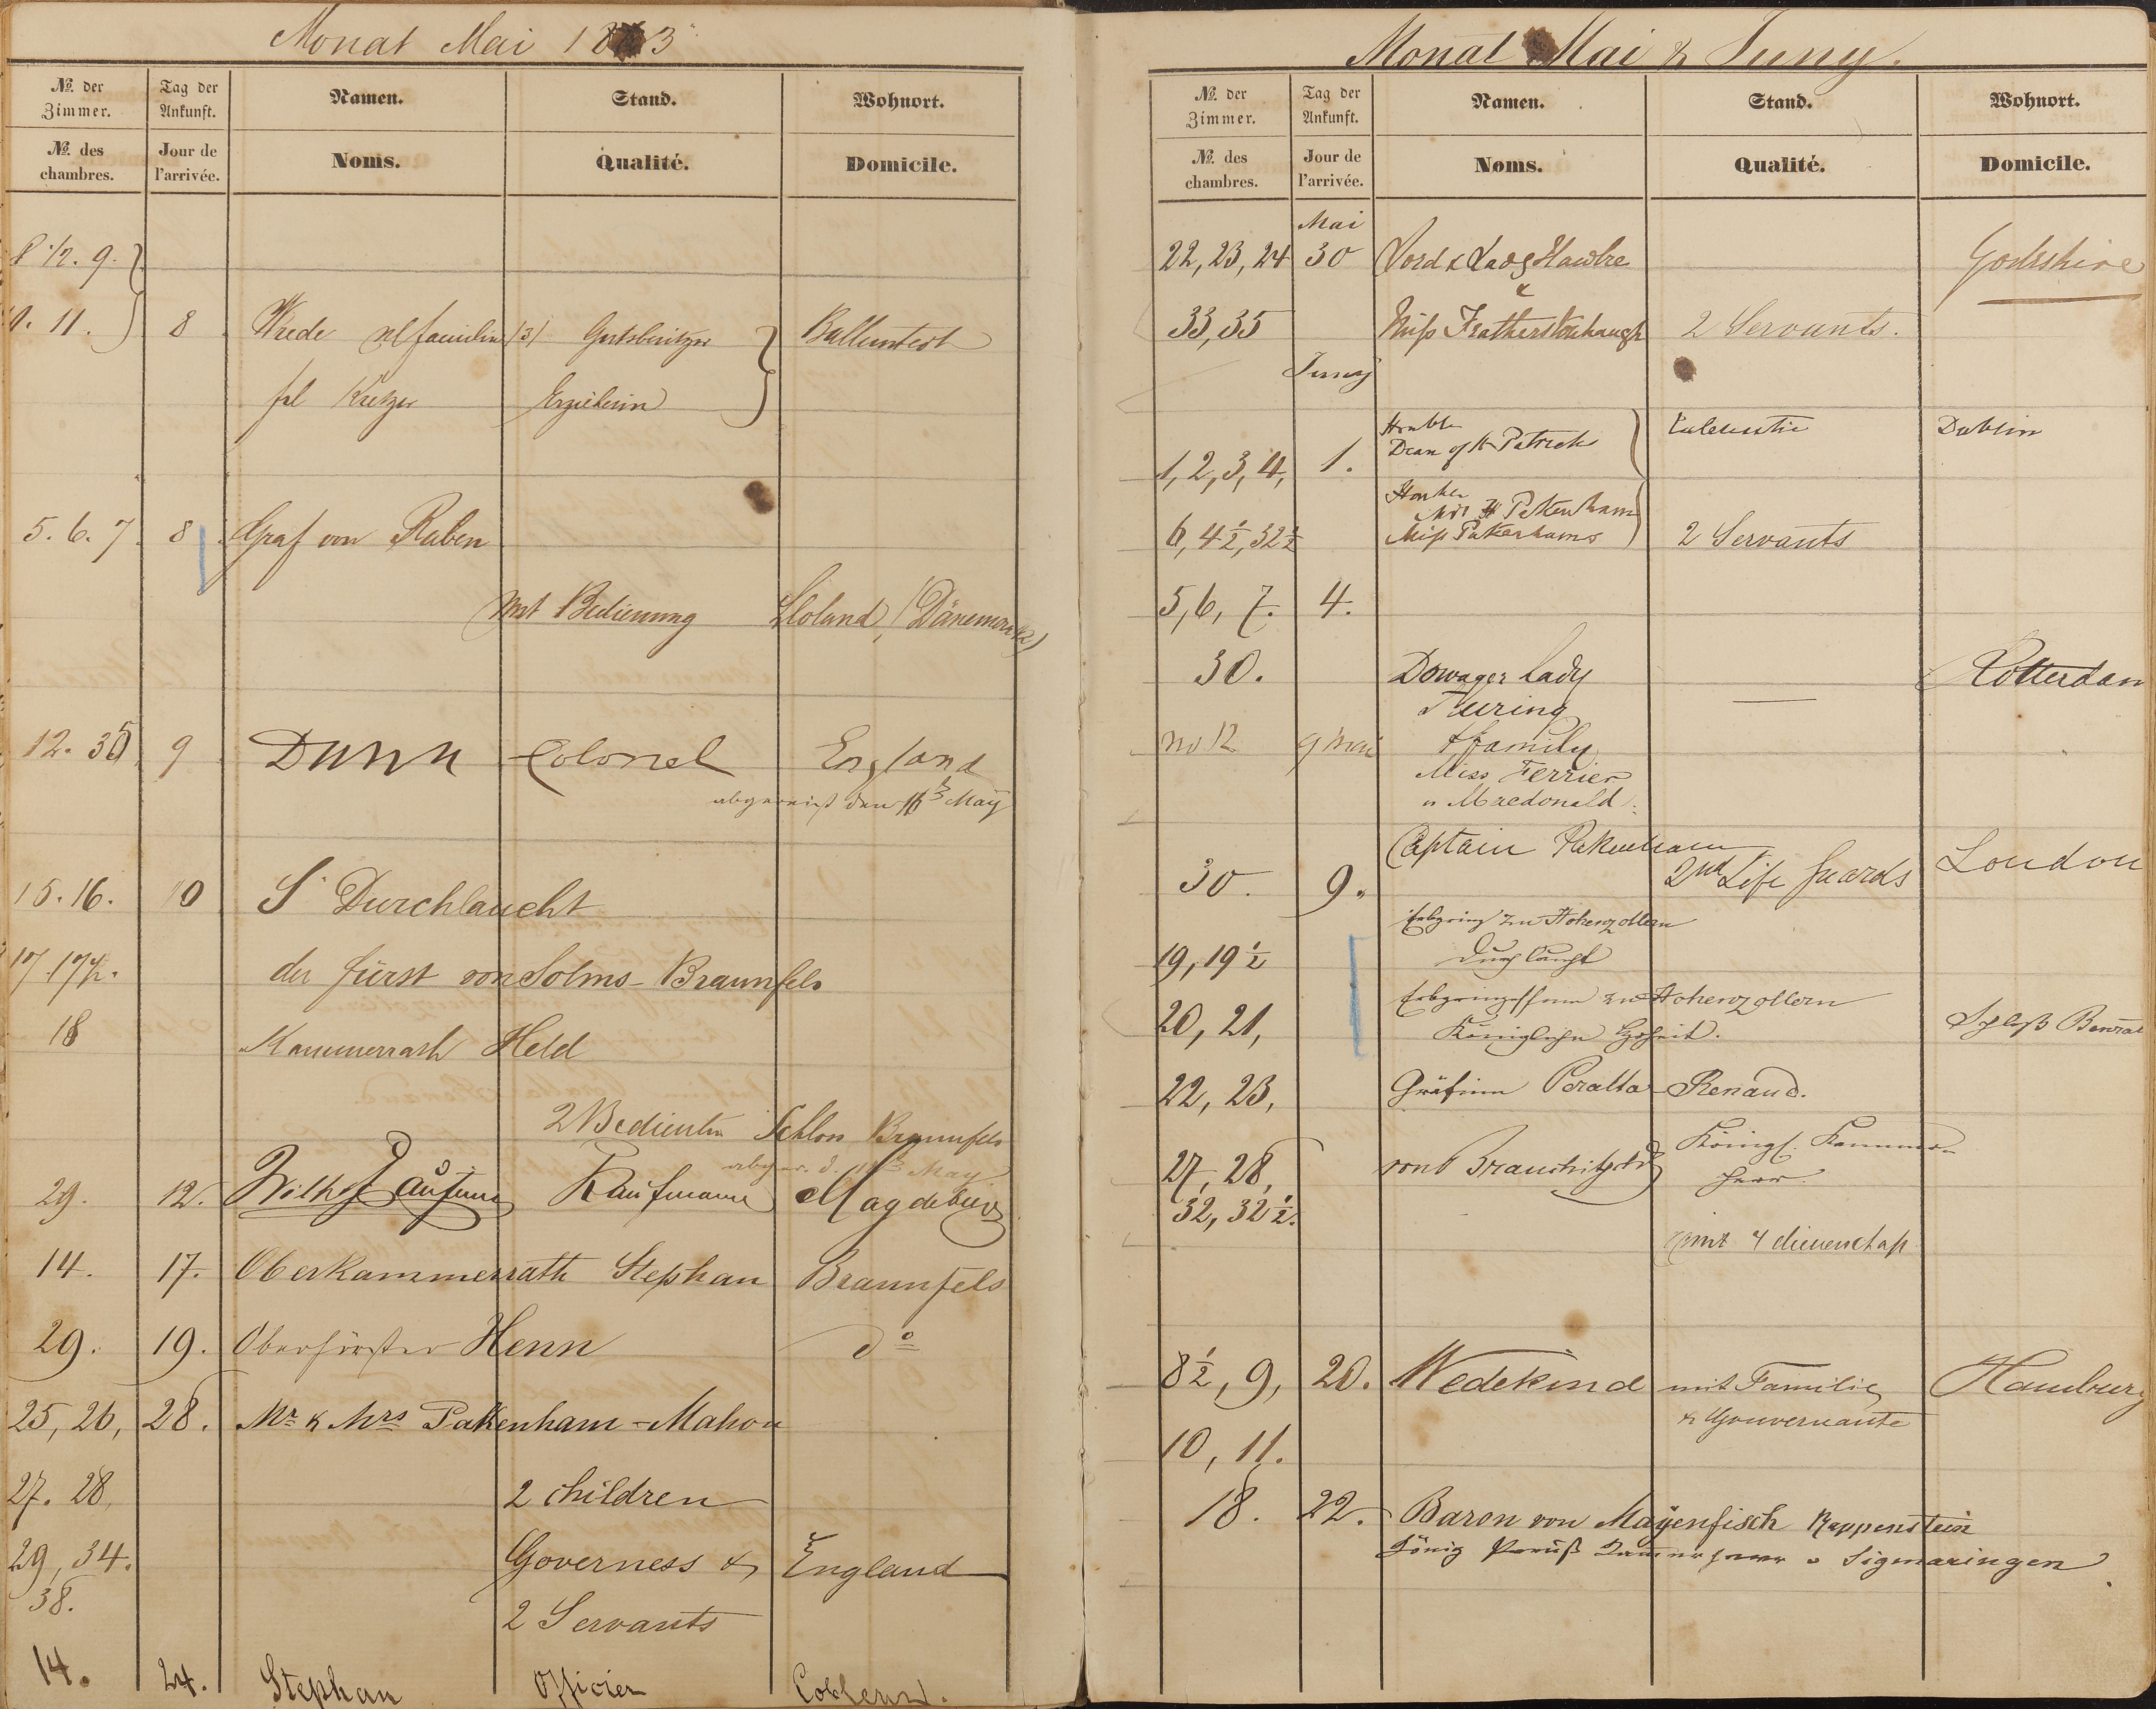 Monat Mai 18 3
№ der Zimmer. Tag der Ankunft. Namen. Stand. Wohnort.
№ des chambres. Jour de l'arrivée. Noms. Qualité. Domicile.
8 1/2. 9.
11. 8 Wrede 3 Gutsbesitzer Ballenstedt
frl Erzieherin
5. 6. 7 8 Graf von Raben
mit Bedienung (Dänemark)
12. 35 9 Dunn Colonel England
den 16 May
15. 16. 10 S Durchlaucht
17 17½. der Fürst von Solms-Braunfels
18 Kammerrath Held
2 Bedienten Schloss Braunfels
May
29. 12. Kaufmann Magdeburg
14. 17. Oberkammerrath Stephan Braunfels
29. 19. Oberförster Henn do
25, 26, 28. Mr & Mrs Pakenham-Mahon
27. 28, 2 children
29, 34. Governess & England
38. 2 Servants
14. 24. Stephan Officier Coblenz.
Monat Mai & Juny.
№ der Zimmer. Tag der Ankunft. Namen. Stand. Wohnort.
№ des chambres. Jour de l'arrivée. Noms. Qualité. Domicile.
Mai
22, 23, 24 30 Lord & Lady
&
33, 35 Miss Featherstonhaugh 2 Servants.
Juny
Honble
1, 2, 3, 4, 1. Dean of St Patrick Dublin
Mrs H Pakenham
6, 4½, 32½ Miss Pakenhams 2 Servants
5, 6, 7. 4.
30. Dowager Lady — Rotterdam
Turing
no 12 9 Mai & family
Miss Ferrier
" Macdonald
Captain Pakenham London
30. 9. 2nd Life Guards
Erbprinz zu Hohenzollern
19, 19½ Durchlaucht
Erbprinzessinn zu Hohenzollern
20, 21, Königliche Hoheit. Schloß Benrat
22, 23, Gräfinn Peralta-Renaud.
27, 28, von Königl. Kammer
32, 32½. Herr.
mit 4
8½, 9, 20. Wedekind mit Familie Hamburg
& Gouvernante
10, 11.
18. 22. Baron von Mayenfisch Rappenstein
König Preuß Kammerherr Sigmaringen